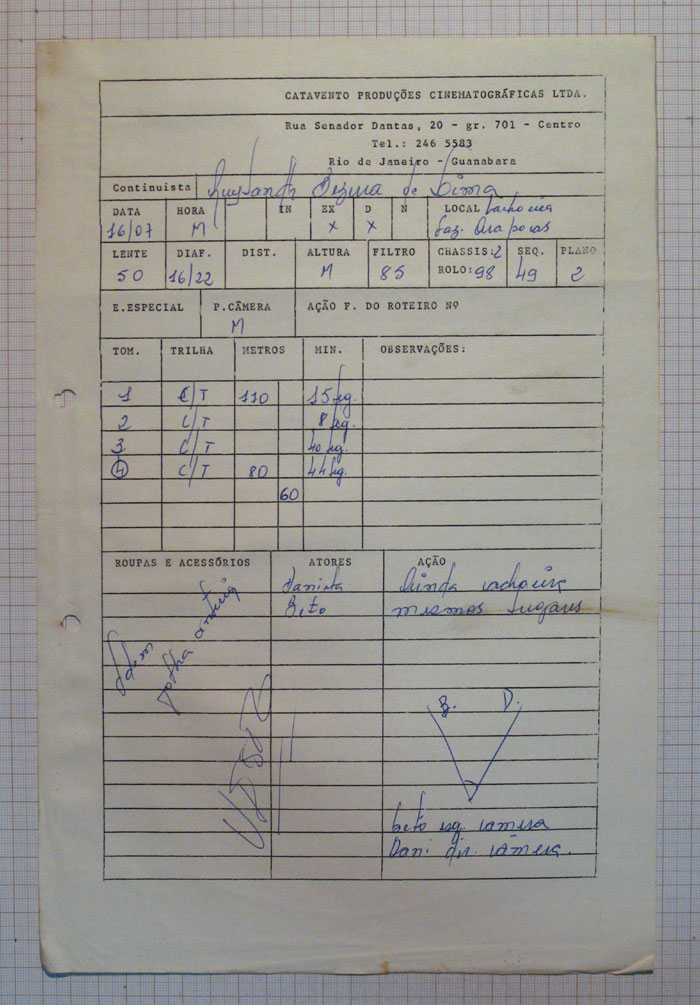 CATAVENTO PRODUÇÕES CINEMATOGRÁFICAS LTDA.
Rua Senador Dantas, 20 - gr. 701 - Centro
Tel.: 246 5583
Rio de Janeiro - Guanabara
Continuista de Lima
DATA HORA IN EX D N LOCAL Cachoeira
16/07 M X X Faz. Araporas
LENTE DIAF. DIST. ALTURA FILTRO CHASSIS: 2 SEQ. PLANO
50 16/22 M 85 ROLO: 98 49 2
E.ESPECIAL P.CÂMERA AÇÃO F. DO ROTEIRO Nº
M
TOM. TRILHA METROS MIN. OBSERVAÇÕES:
1 C/T 110 15 sg.
2 C/T 8 sg.
3 C/T 40 sg.
4 C/T 80 44 sg.
60
ROUPAS E ACESSÓRIOS ATORES AÇÃO
Daniela Ainda cachoeira
Beto mesmos lugares
Idem
folha anterior
B. D.
beto esq. câmera
Dani dir. câmera.